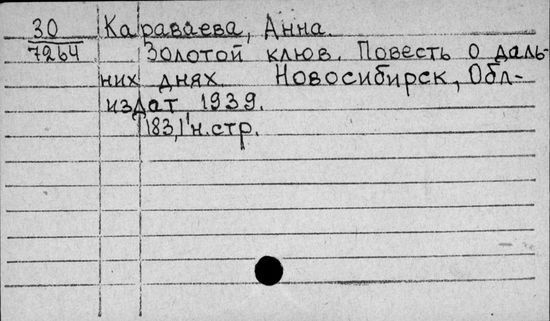 30
7264
Караваева, Анна.
Золотой клюв. Повесть о даль-
них днях. Новосибирск, Обл-
издат 1939.
183,1 н.стр.